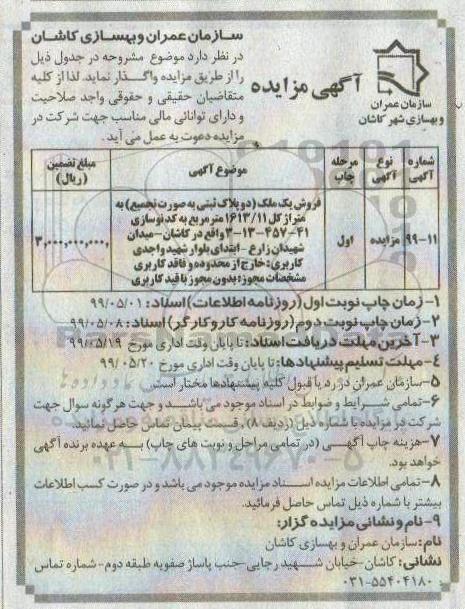 سازمان عمران و بهسازی کاشان
در نظر دارد موضوع مشروحه در جدول ذیل
را از طریق مزایده واگذار نماید. لذا از کلیه
متقاضیان حقیقی و حقوقی واجد صلاحیت
و دارای توانائی مالی مناسب جهت شرکت در
مزایده دعوت به عمل می آید.
آگهی مزایده
سازمان عمران
و بهسازی شهر کاشان
شماره آگهی
نوع آگهی
مرحله چاپ
موضوع آگهی
مبلغ تضمین (ریال)
۹۹-۱۱
مزایده
اول
فروش یک ملک (دو پلاک ثبتی به صورت تجمیع) به
متراژ کل ۱۶۱۳/۱۱ متر مربع به کد نوسازی
۳-۱۳-۴۵۷-۴۱ واقع در کاشان - میدان
شهیدان زارع - ابتدای بلوار شهید واجدی
کاربری: خارج از محدوده و فاقد کاربری
مشخصات مجوز: بدون مجوز با قید کاربری
۳,۰۰۰,۰۰۰,۰۰۰
۱- زمان چاپ نوبت اول (روزنامه اطلاعات) اسناد: ۹۹/۰۵/۰۱
۲- زمان چاپ نوبت دوم (روزنامه کار و کارگر) اسناد: ۹۹/۰۵/۰۸
۳- آخرین مهلت دریافت اسناد: تا پایان وقت اداری مورخ ۹۹/۰۵/۱۹
۴- مهلت تسلیم پیشنهادها: تا پایان وقت اداری مورخ ۹۹/۰۵/۲۰
۵- سازمان عمران در رد یا قبول کلیه پیشنهادها مختار است.
۶- تمامی شرایط و ضوابط در اسناد موجود می باشد و جهت هرگونه سوال جهت
شرکت در مزایده با شماره ذیل (ردیف ۸)، قسمت پیمان تماس حاصل نمائید.
۷- هزینه چاپ آگهی (در تمامی مراحل و نوبت های چاپ) به عهده برنده آگهی
خواهد بود.
۸- تمامی اطلاعات مزایده اسناد مزایده موجود می باشد و در صورت کسب اطلاعات
بیشتر با شماره ذیل تماس حاصل فرمائید.
۹- نام و نشانی مزایده گزار:
نام: سازمان عمران و بهسازی کاشان
نشانی: کاشان - خیابان شهید رجایی - جنب پاساژ صفویه طبقه دوم - شماره تماس
۰۳۱-۵۵۴۰۴۱۸۰
۰۲۱-۸۸۳۴۹۶۷۰-۵